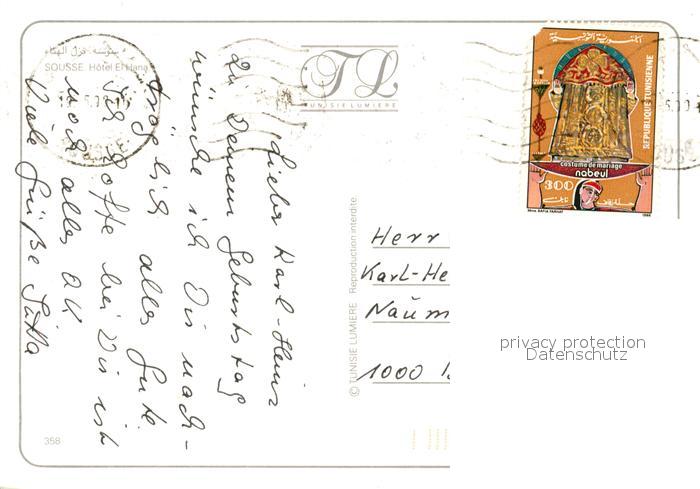 سوسة - نزل الهناء
SOUSSE. Hôtel El Hana
TL
TUNISIE LUMIERE
Lieber Karl-Heinz
zu Deinem Geburtstag
wünsche ich Dir nach-
träglich alles Gute.
Ich hoffe bei Dir ist
noch alles OK
Viele Grüße Jutta
© TUNISIE LUMIERE Reproduction interdite
Herr
Karl-He
Naum
1000
358
الجمهورية التونسية
REPUBLIQUE TUNISIENNE
costume de mariage
nabeul
300
privacy protection
Datenschutz